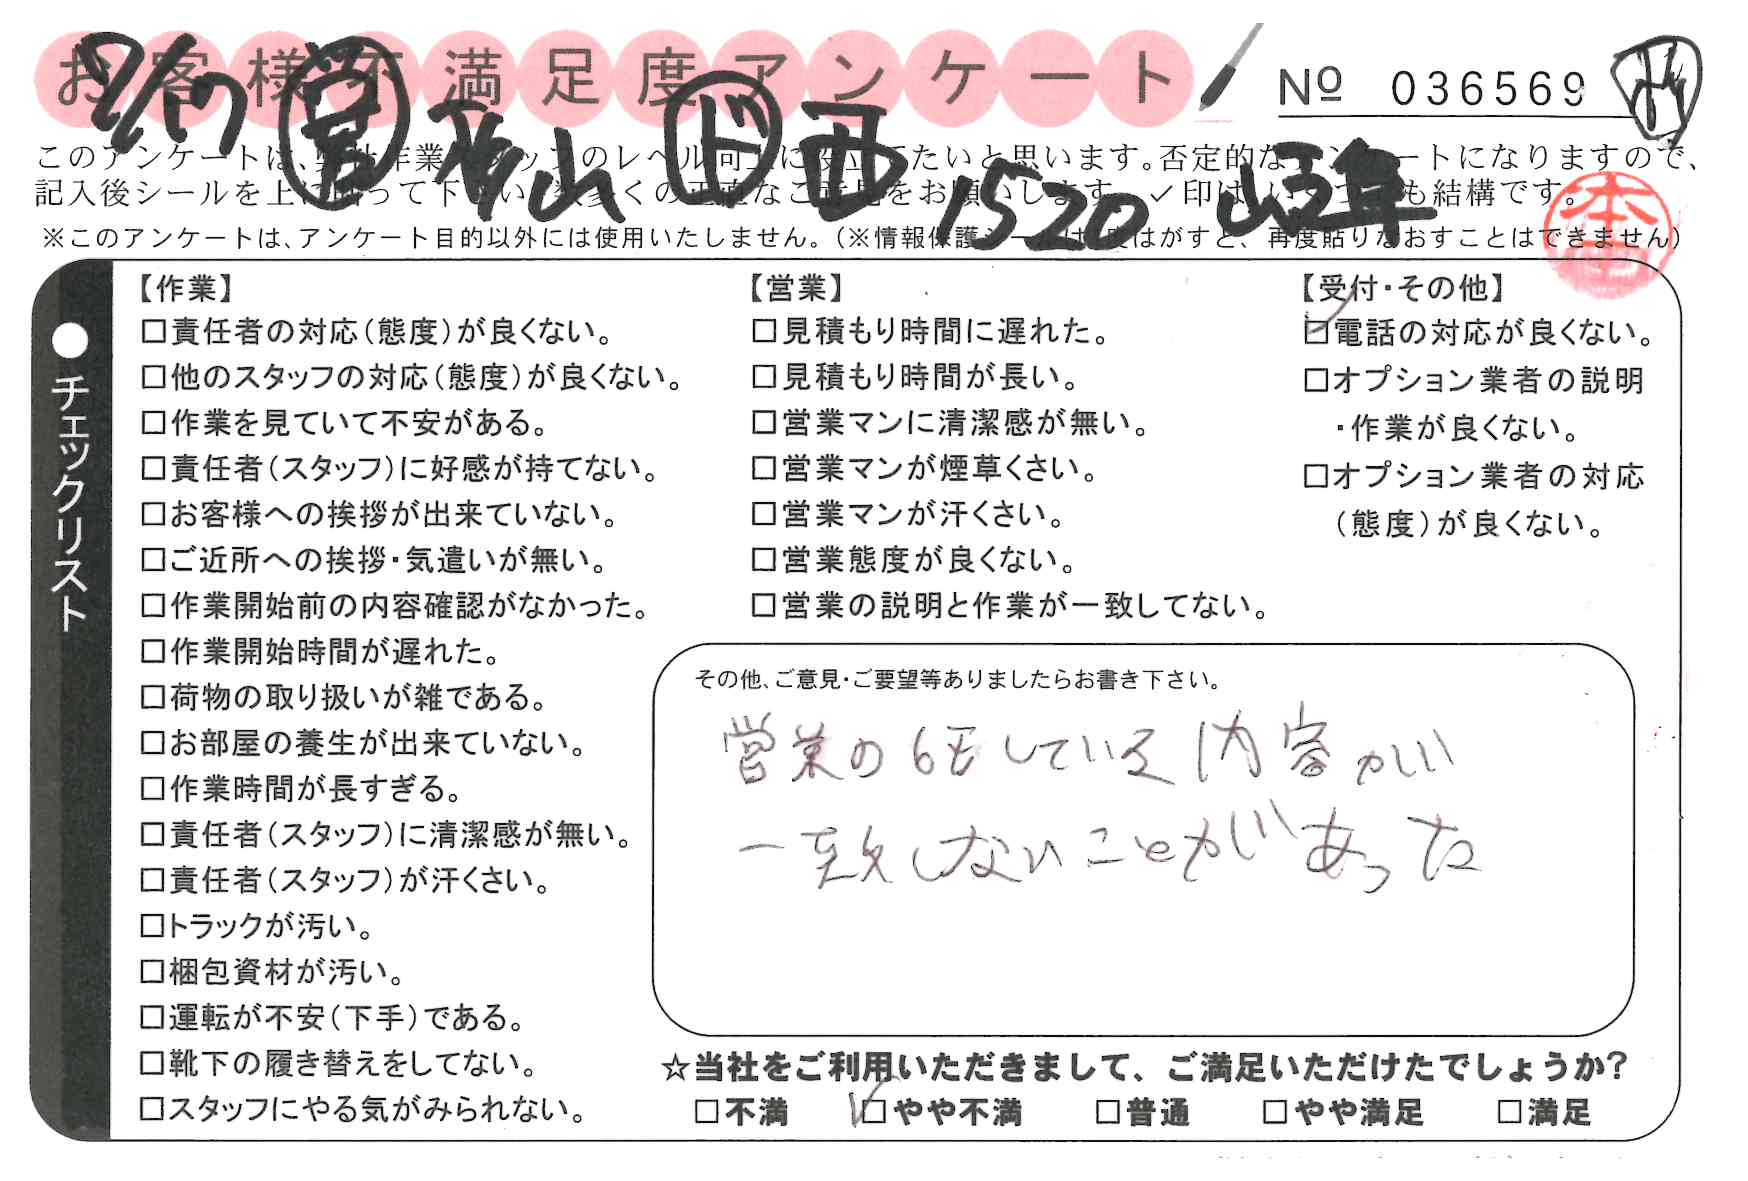 お客様不満足度アンケート
№ 036569
2/17 営 杉山 ド 西 1520
このアンケートは、弊社作業スタッフのレベル向上に役立てたいと思います。否定的なアンケートになりますので、
記入後シールを上に貼って下さい。数多くの正直なご意見をお願いします。✓印はいくつでも結構です。
※このアンケートは、アンケート目的以外には使用いたしません。（※情報保護シールは1度はがすと、再度貼りなおすことはできません）
●チェックリスト
【作業】
□責任者の対応（態度）が良くない。
□他のスタッフの対応（態度）が良くない。
□作業を見ていて不安がある。
□責任者（スタッフ）に好感が持てない。
□お客様への挨拶が出来ていない。
□ご近所への挨拶・気遣いが無い。
□作業開始前の内容確認がなかった。
□作業開始時間が遅れた。
□荷物の取り扱いが雑である。
□お部屋の養生が出来ていない。
□作業時間が長すぎる。
□責任者（スタッフ）に清潔感が無い。
□責任者（スタッフ）が汗くさい。
□トラックが汚い。
□梱包資材が汚い。
□運転が不安（下手）である。
□靴下の履き替えをしてない。
□スタッフにやる気がみられない。
【営業】
□見積もり時間に遅れた。
□見積もり時間が長い。
□営業マンに清潔感が無い。
□営業マンが煙草くさい。
□営業マンが汗くさい。
□営業態度が良くない。
□営業の説明と作業が一致してない。
【受付・その他】
☑電話の対応が良くない。
□オプション業者の説明
・作業が良くない。
□オプション業者の対応
（態度）が良くない。
その他、ご意見・ご要望等ありましたらお書き下さい。
営業の 話している 内容が
一致しないことが あった
☆当社をご利用いただきまして、ご満足いただけたでしょうか?
□不満 ☑やや不満 □普通 □やや満足 □満足